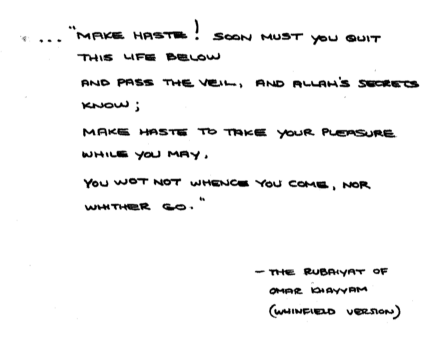 ... "MAKE HASTE! SOON MUST YOU QUIT
THIS LIFE BELOW
AND PASS THE VEIL, AND ALLAH'S SECRETS
KNOW;
MAKE HASTE TO TAKE YOUR PLEASURE
WHILE YOU MAY,
YOU WOT NOT WHENCE YOU COME, NOR
WHITHER GO."
- THE RUBAIYAT OF
OMAR KHAYYAM
(WHINFIELD VERSION)